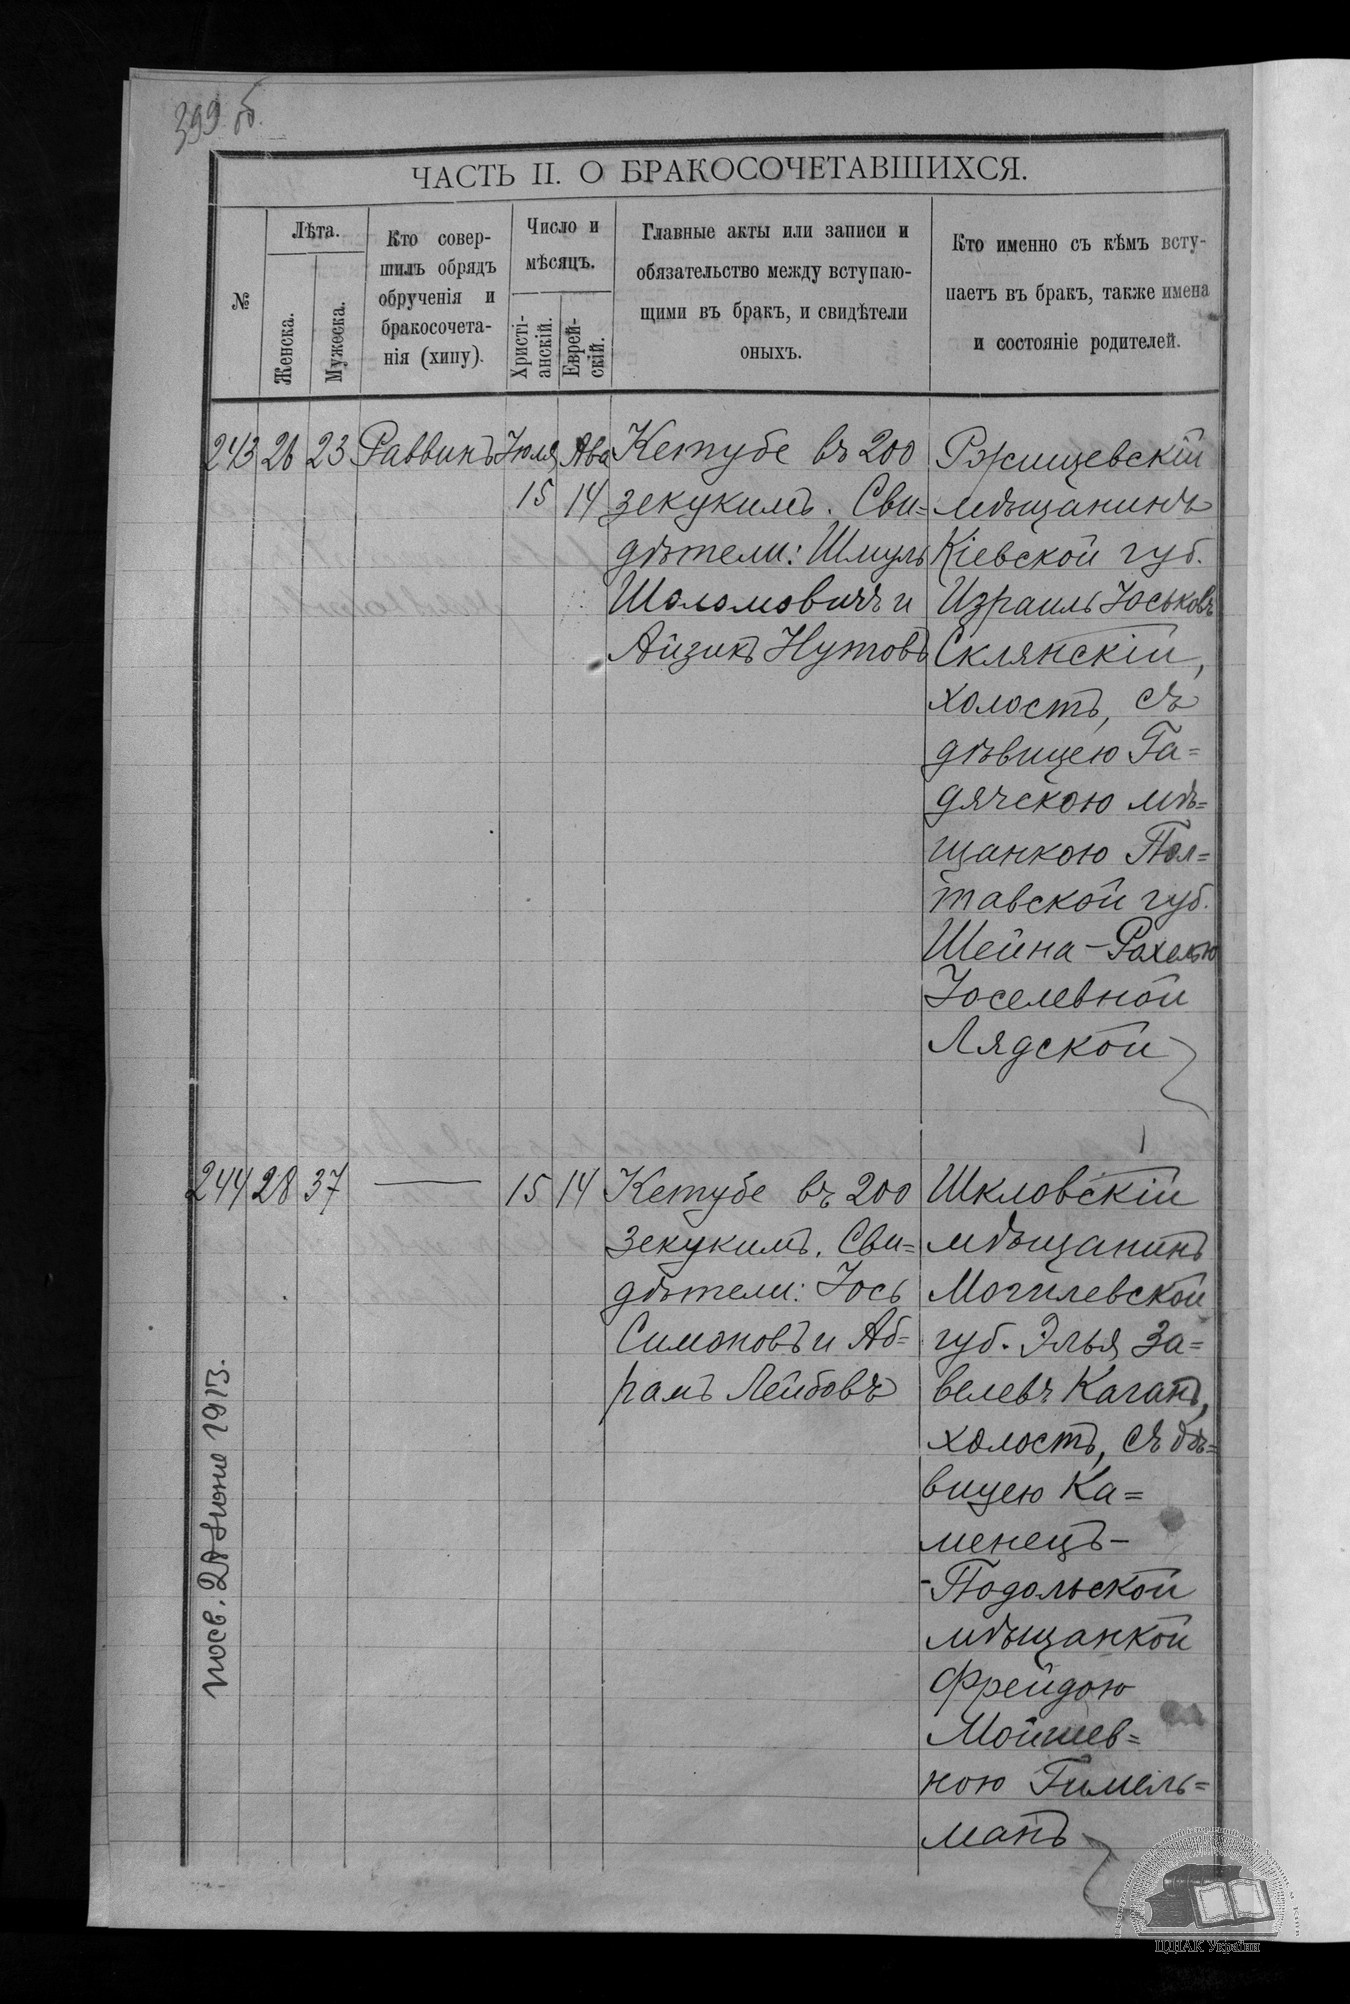 399 об.
ЧАСТЬ II. О БРАКОСОЧЕТАВШИХСЯ.
№
Лѣта.
Женска.
Мужеска.
Кто совер-
шилъ обрядъ
обрученія и
бракосочета-
нія (хипу).
Число и
мѣсяцъ.
Христі-
анскій.
Еврей-
скій.
Главные акты или записи и
обязательство между вступаю-
щими въ бракъ, и свидѣтели
оныхъ.
Кто именно съ кѣмъ всту-
паетъ въ бракъ, также имена
и состояніе родителей.
243 26 23 Раввинъ Іюля Ава
15 14
Кетубе въ 200
зекукимъ. Сви=
дѣтели: Шмуль
Шоломовичъ и
Айзикъ Нутовъ
Ржищевскій
мѣщанинъ
Кіевской губ.
Израиль Іоськовъ
Склянскій,
холостъ, съ
дѣвицею Га=
дячскою мѣ=
щанкою Пол=
тавской губ.
Шейна-Рахелью
Іоселевной
Лядской
244 28 37 — 15 14
Кетубе въ 200
зекукимъ. Сви=
дѣтели: Іось
Симоновъ и Аб=
рамъ Лейбовъ
Шкловскій
мѣщанинъ
Могилевской
губ. Элья За=
велевъ Каганъ,
холостъ, съ дѣ=
вицею Ка=
менецъ-
-Подольской
мѣщанкой
Фрейдою
Мойшев=
ною Гимель=
манъ
1913.
ЦДІАК України